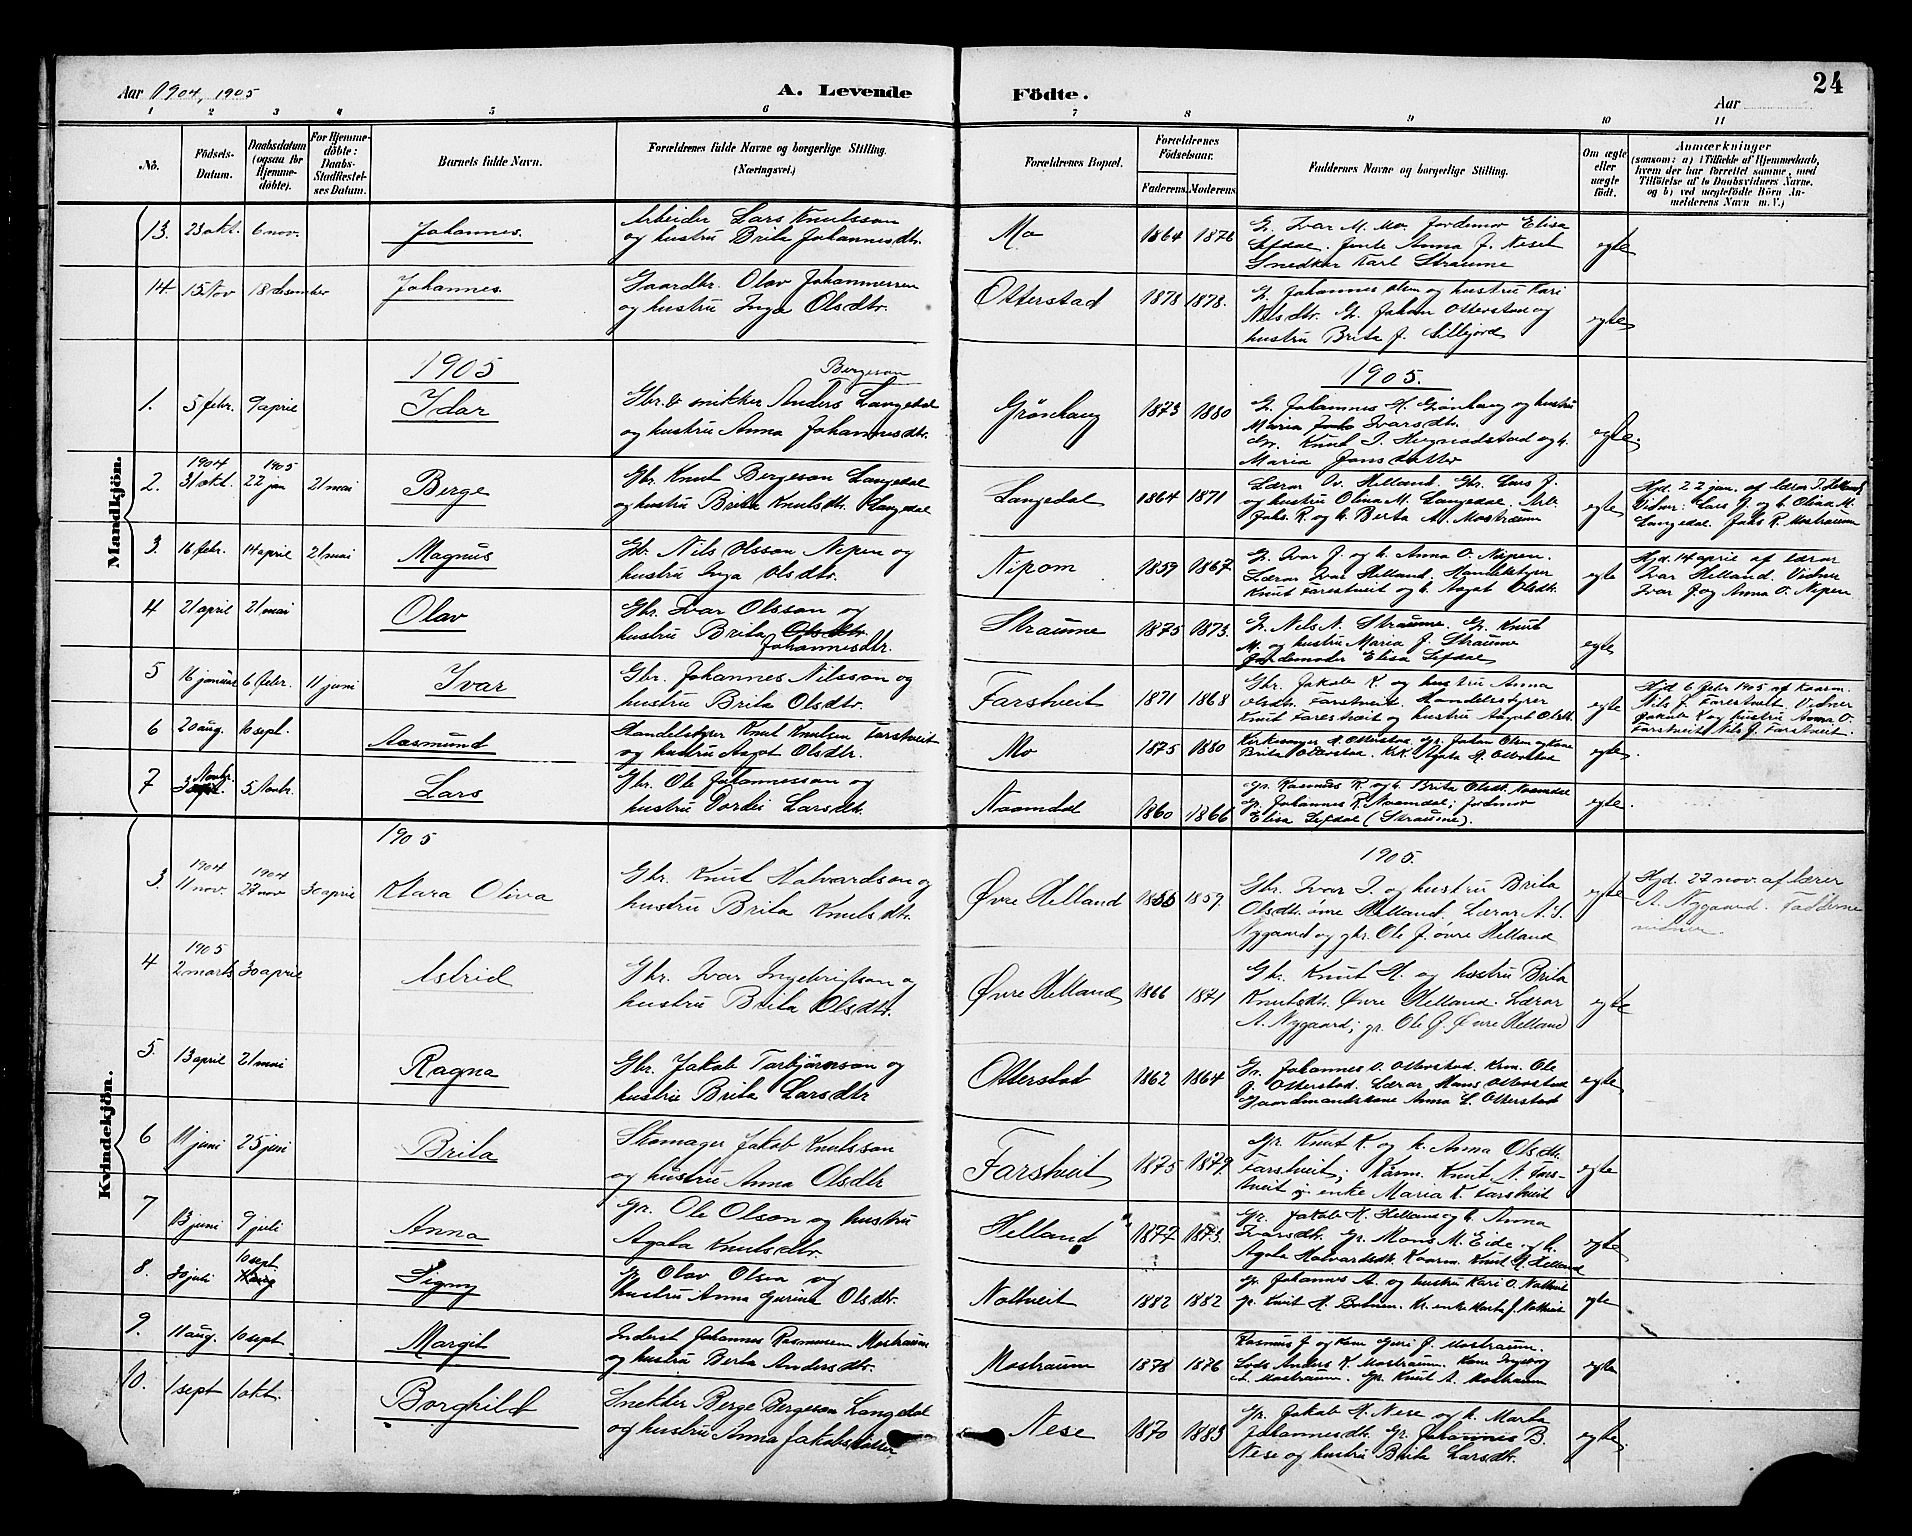 Aar 1904, 1905
A. Levende Födte.
Aar
24
1 2 3 4 5 6 7 8 9 10 11
No.
Födsels-Datum.
Daabsdatum (ogsaa for Hjemme-döbte).
For Hjemme-döbte: Daabs-Stadfæstel-ses Datum.
Barnets fulde Navn.
Forældrenes fulde Navne og borgerlige Stilling. (Næringsvei.)
Forældrenes Bopæl.
Forældrenes Födselsaar.
Faderens. Moderens.
Faddernes Navne og borgerlige Stilling.
Om ægte eller uægte födt.
Anmærkninger
(saasom: a) i Tilfælde af Hjemmedaab,
hvem der har forrettet samme, med
Tilföielse af to Daabsvidners Navne.
og b) ved uægtefödte Börn An-
melderens Navn m. V.)
Mandkjön.
13. 23 okt. 6 nov. Johannes. Arbeider Lars Knutsson
og hustru Brita Johannesdtr. Mo 1864 1876 G. Ivar M. Mo. Jordemor Elisa
Sefdal. Jente Anna J. Neset
Snedker Karl Straume egte
14 15 Nov 18 desember Johannes Gaardbr. Olav Johannessen
og hustru Inga Olsdtr. Otterstad 1878 1878. G. Johannes Olsen og hustru Kari
Nilsdtr. G. Johan Otterstad og
hustru Brita J. Lillejord egte
1905
1905.
1. 5 febr. 9 april Idar Bergeson
Gbr. & snikker Anders Langedal
og hustru Anna Johannesdtr. Grønhaug 1873 1880 G. Johannes H. Grønhaug og hustru
Maria Ivarsdtr.
Knut I. og h.
Maria Jonsdatter egte.
2. 1904 31 okt. 1905 22 jan 21 mai Berge Gbr. Knut Bergeson Langedal
og hustru Brita Knutsdtr. Langedal Langedal 1864 1871 Lærar Iv. Helland. Gbr. Lars J.
og hustru Olina M. Langedal. Arb.
Jaks. R. og h. Berta A. Mostraum egte Hjd. 22 jan. af lærar I. Helland
Vidner: Lars J. og h. Olina M.
Langedal. Jaks R. Mostraum
3. 16 febr. 14 april 21 mai Magnus Gb. Nils Olsson Nipen og
hustru Inga Olsdtr. Nipom 1859 1867. G. Ivar J. og h. Anna O. Nipen.
Lærar Ivar Helland. Handelsstyrer
Knut Farestveit og h. Aagot Olsdtr. egte Hjd. 14 april af lærar
Ivar Helland. Vidner
Ivar J. og Anna O. Nipen
4 21 april 21 mai Olav Gbr. Ivar Olsson og
hustru Brita Olsdtr. Johannesdtr. Straume 1875 1873. G. Nils N. Straume. G. Knut
M. og hustru Maria J. Straume
Jordemoder Elisa Sefdal egte
5 16 januar 6 febr. 11 juni Ivar Gbr. Johannes Nilsson og
hustru Brita Olsdtr. Farstveit 1871 1868 Gbr. Jakob K. og hustru Anna
Olsdtr. Farstveit. Handelsstyrer
Knut Farestveit og hustru Aagot Olsdtr. egte Hjd. 6 febr 1905 af kaarm.
Nils J. Farestveit. Vidner
Jakob K og hustru Anna O.
Farstveit Nils J. Farstveit.
6 20 aug. 10 sept. Aasmund Handelsstyrer Knut Knutsen Farstveit
og hustru Aagot Olsdtr. Mo 1875 1880 Kirkesanger H. Otterstad. Gr. Johan Olsen og kone
Brita Otterstad. Agata R. Otterstad egte
7 3 Novbr. 5 Novbr. Lars Gbr. Ole Johannesson og
hustru Tordei Larsdtr. Naamdal 1860 1866 Gr. Rasmus K. og h. Brita Olsdtr. Naamdal
Gr. Johannes R. Naamdal; Jordemor
Elisa Sefdal (Straume). egte
Kvindekjön.
1905
1905.
3. 1904 11 nov. 1904 27 nov 30 april Klara Oliva Gbr. Knut Halvardson og
hustru Brita Knutsdtr. Øvre Helland 1855 1859. Gbr. Ivar I. og hustru Brita
Olsdtr. øvre Helland. Lærar A. S.
Nygaard og gbr. Ole J. øvre Helland egte Hjd. 27 nov. af lærer
A. Nygaard. Fadderne
vidner.
4 1905 2 marts 30 april Astrid Gbr. Ivar Ingebrigtson og
hustru Brita Olsdtr. Øvre Helland 1866 1871 Gb. Knut H. og hustru Brita
Knutsdtr. Øvre Helland. Lærar
A. Nygaard; gr. Ole J. Øvre Helland egte
5. 13 april 21 mai Ragna Gbr. Jakob Torbjørnson og
hustru Brita Larsdtr Otterstad 1862 1864 Gr. Johannes O. Otterstad. Krm. Ole
J. Otterstad. Lærar Mons Otterstad
Gaardmandskone Anna L. Otterstad egte
6 11 juni 25 juni Brita Skomager Jakob Knutsson
og hustru Anna Olsdtr Farstveit 1875 1879. Gr. Knut K. og h. Anna Olsdtr.
Farstveit; Kårm. Knut N. Fars-
tveit og enke Maria K. Farstveit egte
7 13 juni 9 juli Anna Gr. Ole Olson og hustru
Agata Knutsdtr. Helland 1877 1873. Gr. Jakob H. Helland og h. Anna
Ivarsdtr. Gr. Mons M. Eide og h.
Agata Halvardsdtr. Kaarm. Knut H. Helland egte
8. 30 juli 10 sept. Signy Gr Olav Olsen og
hustru Anna Gurina Olsdtr. Nottveit 1882 1882 Gr. Johannes A. og hustru Kari O. Nottveit
Gr. Knut H. Botnen. Kr. enke Marta J. Nottveit egte
9. 11 aug. 10 sept Margit Inderst Johannes Rasmussen Mostraum
og hustru Berta Andersdtr. Mostraum 1878 1876 Rasmus J og kone Guri J. Mostraum.
Lods Anders K. Mostraum. Kone Ingeborg
A. Mostraum. Gr. Knut A. Mostraum egte
10. 1 sept 1 okt. Borghild Snekker Berge Bergeson Langedal
og hustru Anna Jakobsdatter Nese 1870 1883 Gr. Jakob H. Nese og h. Marta
Johannesdtr. Gr. Johannes B.
Nese og hustru Brita Larsdtr. egte.